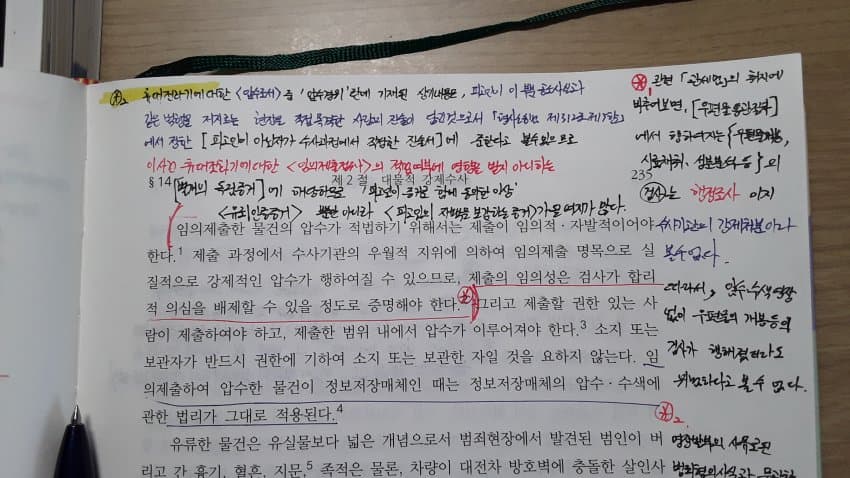 휴대전화기에 대한 <압수조서> 중 '압수경위'란에 기재된 상기내용은, 피고인이 이 뿐 공소사실과
같은 범행을 저지르는 현장을 직접 목격한 사람의 진술이 담긴것으로서 「형사소송법 제312조 제5항」
에서 정한 [피고인이 아닌자가 수사과정에서 작성한 진술서]에 준한다고 볼수 있으므로
이 사건 휴대전화기에 대한 <임의제출절차>의 적법여부에 영향을 받지 아니하는
§ 14 [별개의 독립증거]에 해당하므로 '피고인이 증거로 함에 동의한 이상'
제 2 절 대물적 강제수사
235
<유죄인증증거> 뿐만 아니라 <피고인의 자백을 보강하는 증거>가 될 여지가 많다.
임의제출한 물건의 압수가 적법하기 위해서는 제출이 임의적·자발적이어야
한다.1 제출 과정에서 수사기관의 우월적 지위에 의하여 임의제출 명목으로 실
질적으로 강제적인 압수가 행하여질 수 있으므로, 제출의 임의성은 검사가 합리
적 의심을 배제할 수 있을 정도로 증명해야 한다.2 그리고 제출할 권한 있는 사
람이 제출하여야 하고, 제출한 범위 내에서 압수가 이루어져야 한다.3 소지 또는
보관자가 반드시 권한에 기하여 소지 또는 보관한 자일 것을 요하지 않는다. 임
의제출하여 압수한 물건이 정보저장매체인 때는 정보저장매체의 압수·수색에
관한 법리가 그대로 적용된다.4
유류한 물건은 유실물보다 넓은 개념으로서 범죄현장에서 발견된 범인이 버
리고 간 흉기, 혈흔, 지문,5 족적은 물론, 차량이 대전차 방호벽에 충돌한 살인사
관련 「관세법」의 취지에
비추어보면, [우편물 통관절차]
에서 행하여지는 {우편물개봉,
시료채취, 성분분석 등}의
검사는 행정조사 이지
수사기관의 강제처분이라
볼수 없다.
따라서, 압수·수색영장
없이 우편물의 개봉등의
검사가 행해졌더라도
위법하다고 볼 수 없다.
2.
영장발부의 사유로된
범죄혐의사실과 무관한